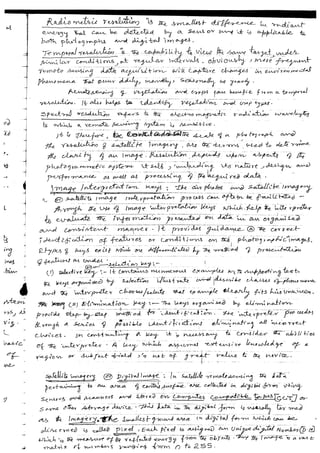 Radiometric resolution is the smallest difference in radiant
energy that can be detected by a sensor and it is applicable to
both photographs and digital images.
Temporal resolution is the capability to view the same target, under
similar conditions, at regular intervals. obviously, more frequent
remote sensing data acquisition will capture changes in environmental
phenomena that occur daily, monthly, seasonally or yearly.
Remote sensing of vegetation and crops can benefit from a temporal
resolution. It also helps to identify vegetation and crop types.
Spectral resolution refers to the electromagnetic radiation wavelengths
to which a remote sensing system is sensitive.
It is therefore, the scale of a photograph and
the resolution of satellite imagery, are the devices used to determine
the clarity of an image. Resolution depends upon aspects of the
photogrammetric system itself, including its nature, design and
performance as well as processing of the acquired data.
Image Interpretation Keys: The air photos and satellite imagery
satellite image interpretation process can often be facilitated
through the use of image interpretation keys which help the interpreter
to evaluate the information presented on data in an organised
and consistent manner. It provides guidance the correct
identification of features or conditions on the photographic images.
types of keys exist which are differentiated by the method of presentation
of features as under:
selection key:-
(i) selective key :- It contains numerous examples with supporting text.
the keys organised by selection illustrate and describe classes of phenomena
and the interpreter chooses/selects that example clearly fits his
Elimination key :- The keys organised by elimination
provide step-by-step method for identification. The interpreter proceeds
through a series of possible identifications eliminating all incorrect
choices. In constructing a key it is necessary to consider the abilities
of the interpreter. A key which assumes extensive knowledge of a
region or subject field is not of great value to the novice.
Satellite imagery Digital image: In satellite remote sensing the data
pertaining to an area of earth surface are collected in digital form using
sensors and scanners and stored on Computer Compatible Tapes (CCT) or
some other storage device. This data in the digital form is usually termed
as the Imagery. The smallest ground area in digital form which can be
discerned is called pixel. Each pixel is assigned an unique digital Number
which is the measure of the reflected energy from the objects. The image is a vast
matrix of numbers ranging from 0 to 255.